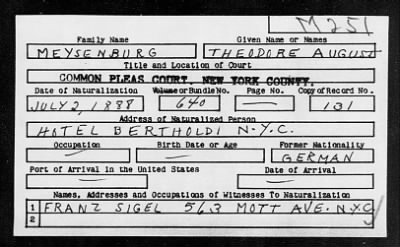 M251
Family Name Given Name or Names
MEYSENBURG THEODORE AUGUST
Title and Location of Court
COMMON PLEAS COURT, NEW YORK COUNTY.
Date of Naturalization Volume or Bundle No. Page No. Copy of Record No.
JULY 2, 1888 640 — 131
Address of Naturalized Person
HOTEL BERTHOLDI N.Y.C.
Occupation Birth Date or Age Former Nationality
— — GERMAN
Port of Arrival in the United States Date of Arrival
— —
Names, Addresses and Occupations of Witnesses To Naturalization
1 FRANZ SIGEL 563 MOTT AVE. N.Y.C.
2